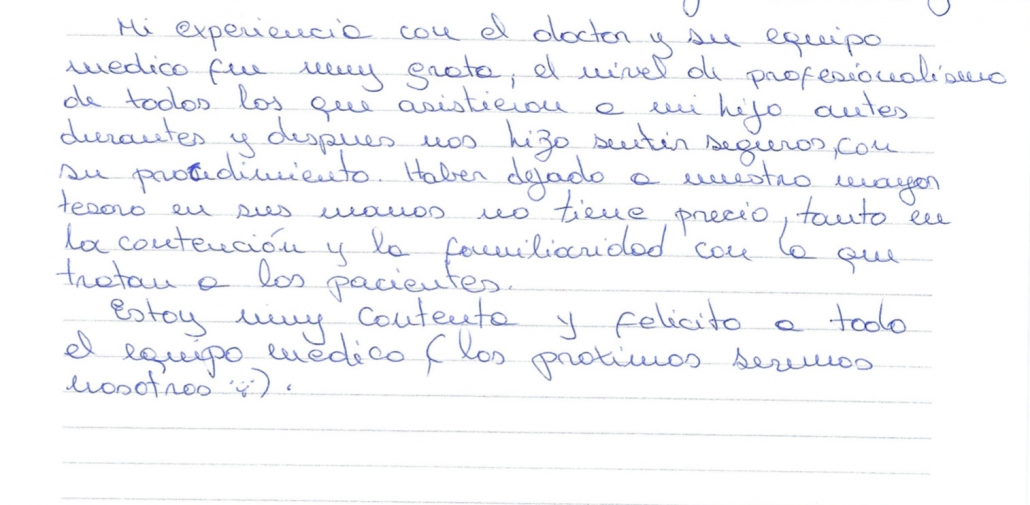 Mi experiencia con el doctor y su equipo
medico fue muy grata, el nivel de profesionalismo
de todos los que asistieron a mi hijo antes
durantes y despues nos hizo sentir seguros, con
su procedimiento. Haber dejado a nuestro mayor
tesoro en sus manos no tiene precio, tanto en
la contención y la familiaridad con la que
tratan a los pacientes.
Estoy muy contenta y felicito a todo
el equipo médico (los proximos seremos
nosotros ).